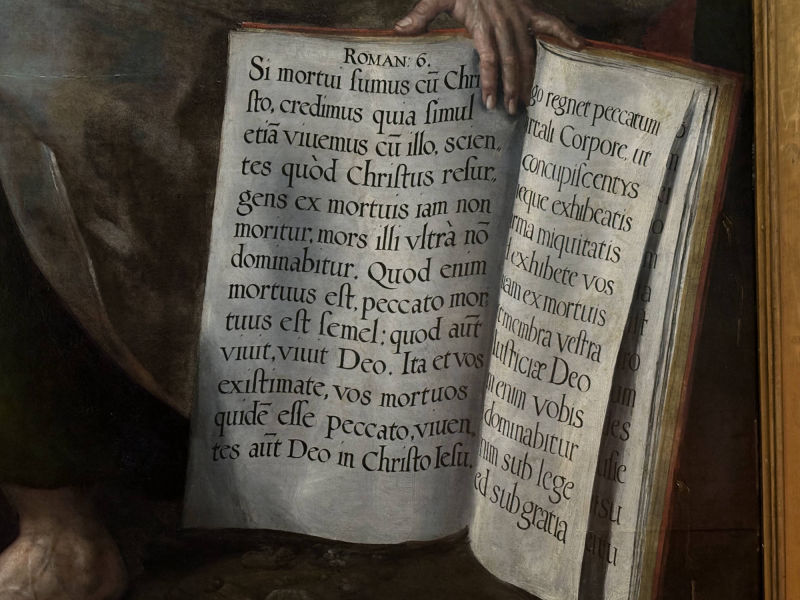 ROMAN: 6.
Si mortui sumus cũ Chri
sto, credimus quia simul
etiã viuemus cũ illo, scien,,
tes quòd Christus resur,,
gens ex mortuis iam non
moritur, mors illi vltrà nõ
dominabitur. Quod enim
mortuus est, peccato mor,
tuus est semel; quod aũt
viuit, viuit Deo. Ita et vos
existimate, vos mortuos
quidẽ esse peccato, viuen,
tes aũt Deo in Christo Iesu.
go regnet peccatum
rtali Corpore, ut
concupiscentys
neque exhibeatis
rma miquitatis
d exhibete vos
uam ex mortuis
t membra vestra
Iusticiæ Deo
m enim vobis
dominabitur
nim sub lege
ed sub gratia